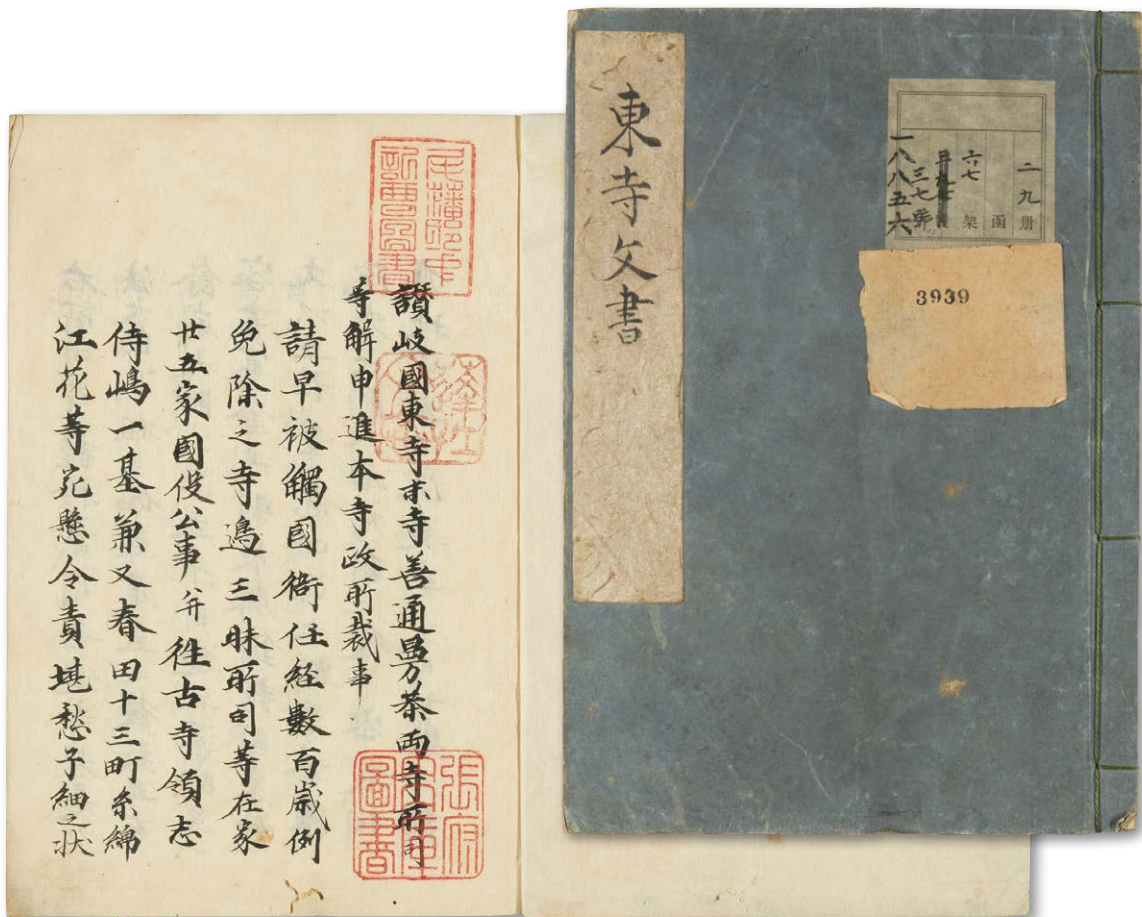 東寺文書
二九冊
函
六七架
三七號
一八八五六
3939
讃岐國東寺末寺善通曼荼両寺所司
等解申進本寺政所裁事
請早被觸國衙任経數百歳例
免除之寺邊三昧所司等在家
廿五家國役公事并往古寺領志
侍嶋一基兼又春田十三町糸綿
江花等宛懸令責堪愁子細之状
張府内庫圖書